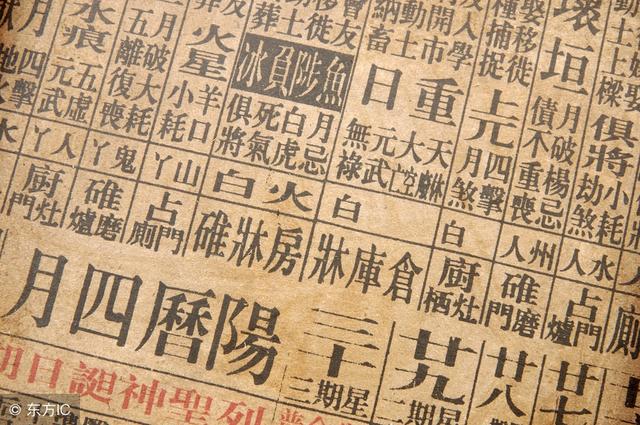 俱將
劫煞
小耗
人水
占門爐
廿七
壞垣
月破
楊忌
債不
重喪
人州
碓磨門
廿八
娶移徙
種捕捉
上元
四擊
月煞
白
廚灶栖
廿九
星期二
人學
開市
動土
納畜
重日
天
大空
元武
無祿
白
倉庫牀
三十
星期三
會友
移徙
葬
魚陟負冰
月忌
白虎
死氣
俱將
火白
房牀碓
火星
羊口
小耗
山丫
占門廁
月破
大耗
五離
復喪
鬼丫
碓磨爐
水痕
五虛
元武
人丫
廚灶門
四擊
水
陽曆四月
列聖神誕日期
© 东方IC